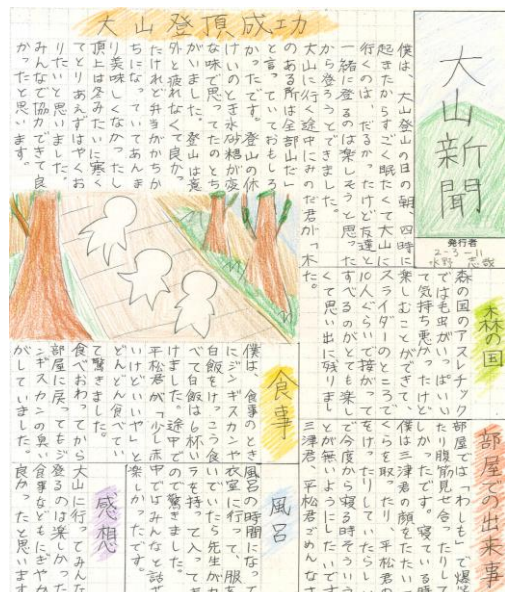 大山新聞
発行者
2-3-11
水野
大山登頂成功
僕は、大山登山の日の朝、四時に
起きたからすごく眠たくて大山に
行くのは、だるかったけど友達と
一緒に登るのは楽しそうと思った
から登ろうとできました。
大山に行く途中にみのだ君が「木
のある所は全部山だ」
と言っていておもしろ
かったです。登山の休
けいのとき氷砂糖が変
な味で思ってたのとち
がいました。登山は意
外と疲れなくて良かっ
たけれど弁当がかちか
ちになっていてあんま
り美味しくなかったし
頂上は冬みたいに寒く
てとりあえずはやくお
りたいと思いました。
みんなで協力できて良
かったと思います。
森の国
森の国のアスレチック
では毛虫がいっぱいい
て気持ち悪かったけど
楽しむことができて、
スライダーのところで
10人ぐらいで接がって
すべるのがとても楽し
くて思い出に残りまし
た。
部屋での出来事
部屋では「わしも」で爆笑
たり腹筋見せ合ったりして
しかったです。寝ている時
僕は三津君の顔をたたいて
くらを取ったり、平松君の
をけったりしていたらしい
で今度から寝る時そういう
とが無いようにしたいです
三津君、平松君ごめんなさ
食事
僕は、食事のとき
にジンギスカンや
白飯をけっこう食
べて白飯は6杯い
けました。途中で
平松君が「少し赤
いけどいいや」と
どんどん食べてい
て驚きました。
食べおわってから
部屋に戻ってもジ
ンギスカンの臭い
がしていました。
風呂
風呂の時間になって
衣室に行って、服を
いでいたら先生がカ
ラを持って入ってき
ので驚きました。
中ではみんなと話せ
楽しかったです。
感想
大山に行ってみんな
登るのは楽しかった
食事などもにぎやか
良かったと思います